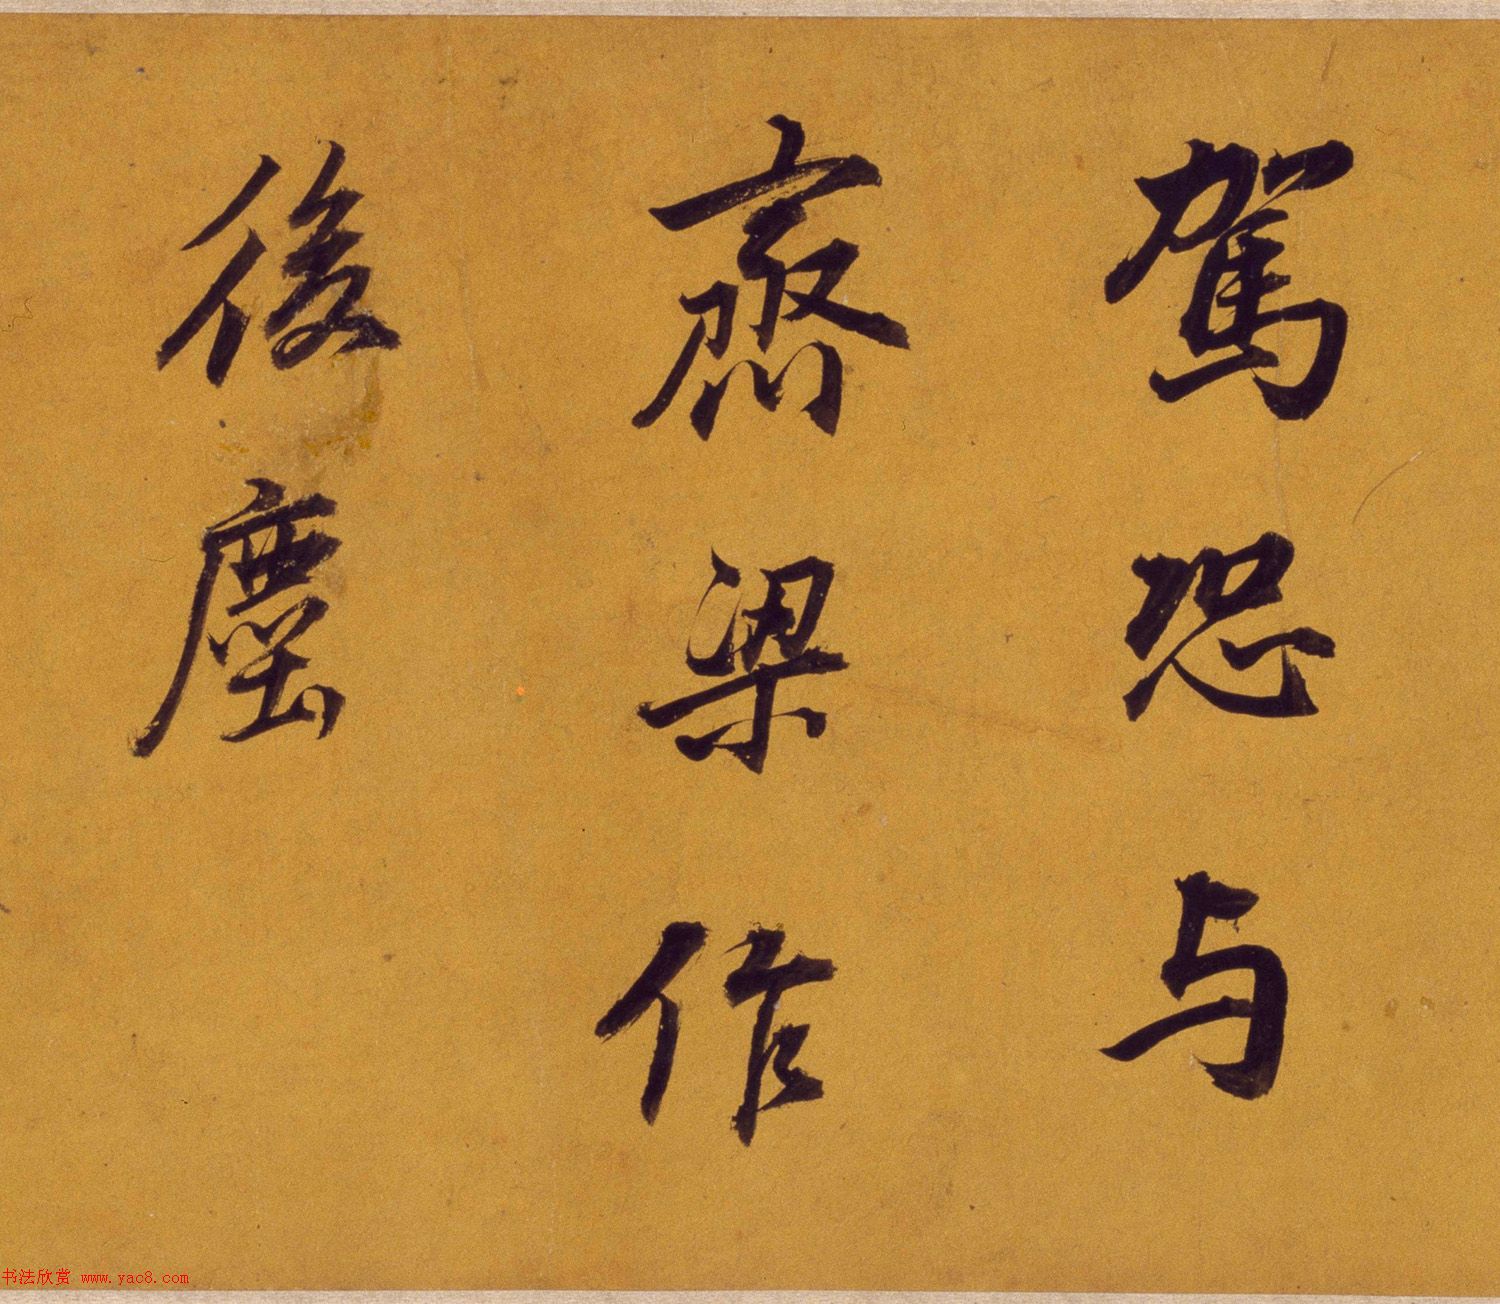 駕恐与
齊梁作
後塵
书法欣赏 www.yac8.com